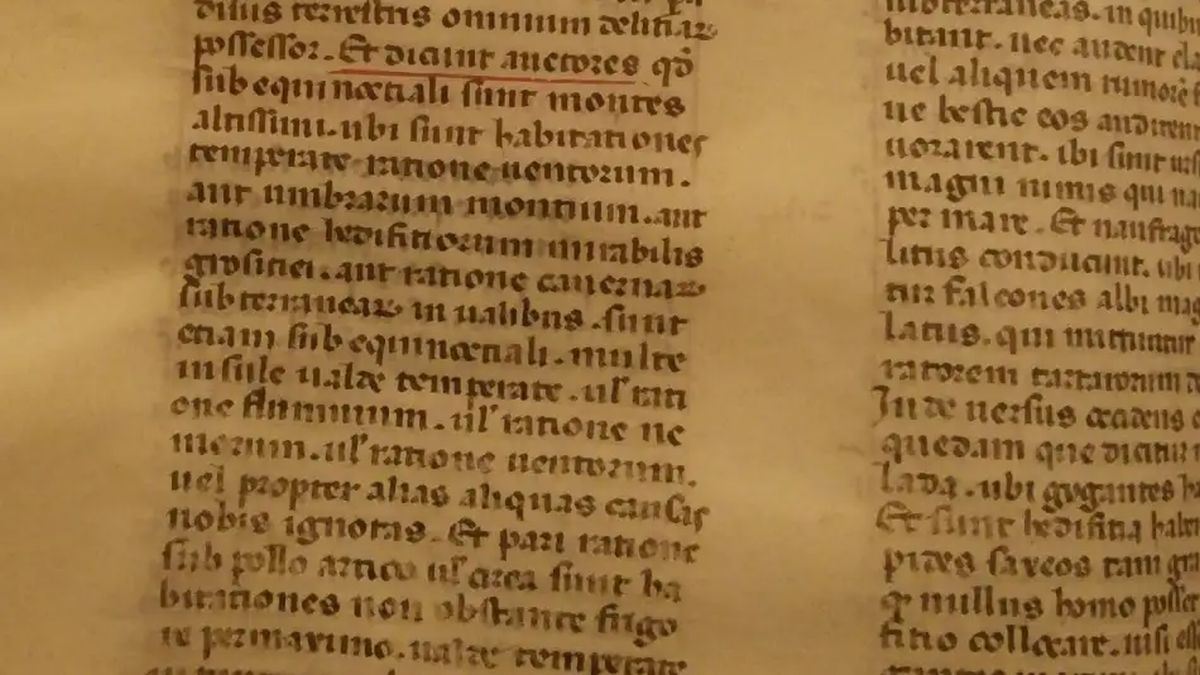 disus terrestris omnium delitiaꝝ
possessor. Et dicunt auctores qđ
sub equinoctiali sunt montes
altissimi. ubi sunt habitationes
temperate ratione uentorum.
aut umbrarum montium. aut
ratione hedifitiorum mirabilis
grositiei. aut ratione cauernaꝝ
subterraneaꝝ in ualibus. sunt
etiam sub equinoctiali. multe
insule ualde temperate. ul' rati
one fluminum. ul' ratione ne
morum. ul' ratione uentorum.
uel propter alias aliquas causas
nobis ignotas. Et pari ratione
sub pollo artico ul' circa sunt ha
bitationes non obstante frigo
re permaximo. ualde temperate
subterraneas. in quibu
bitant. nec audent cla
uel aliquem rumorē f
ne bestie eos audirent
uorarent. ibi sunt urs
magni nimis qui na
per mare. Et naufrag
litus conducunt. ubi
tur falcones albi mag
latus. qui mittuntur
ratorem tartarorum d
Inde uersus occidens
quedam que dicitur
lada. ubi gygantes h
Et sunt hedifitia habe
pides saxeos tam gra
ꝙ nullus homo posset
fitio collocare. nisi ess